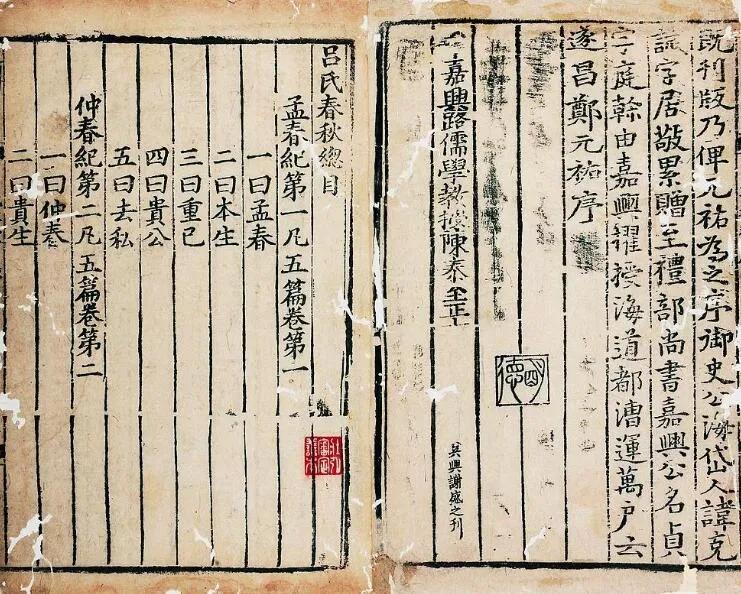 既刊版乃俾元祐為之序御史公海岱人諱克
誠字居敬累贈至禮部尚書嘉興公名貞
字庭幹由嘉興擢授海道都漕運萬戶云
遂昌鄭元祐序
嘉興路儒學教授陳泰至正
吳興謝盛之刊
呂氏春秋總目
孟春紀第一凡五篇卷第一
一曰孟春
二曰本生
三曰重己
四曰貴公
五曰去私
仲春紀第二凡五篇卷第二
一曰仲春
二曰貴生